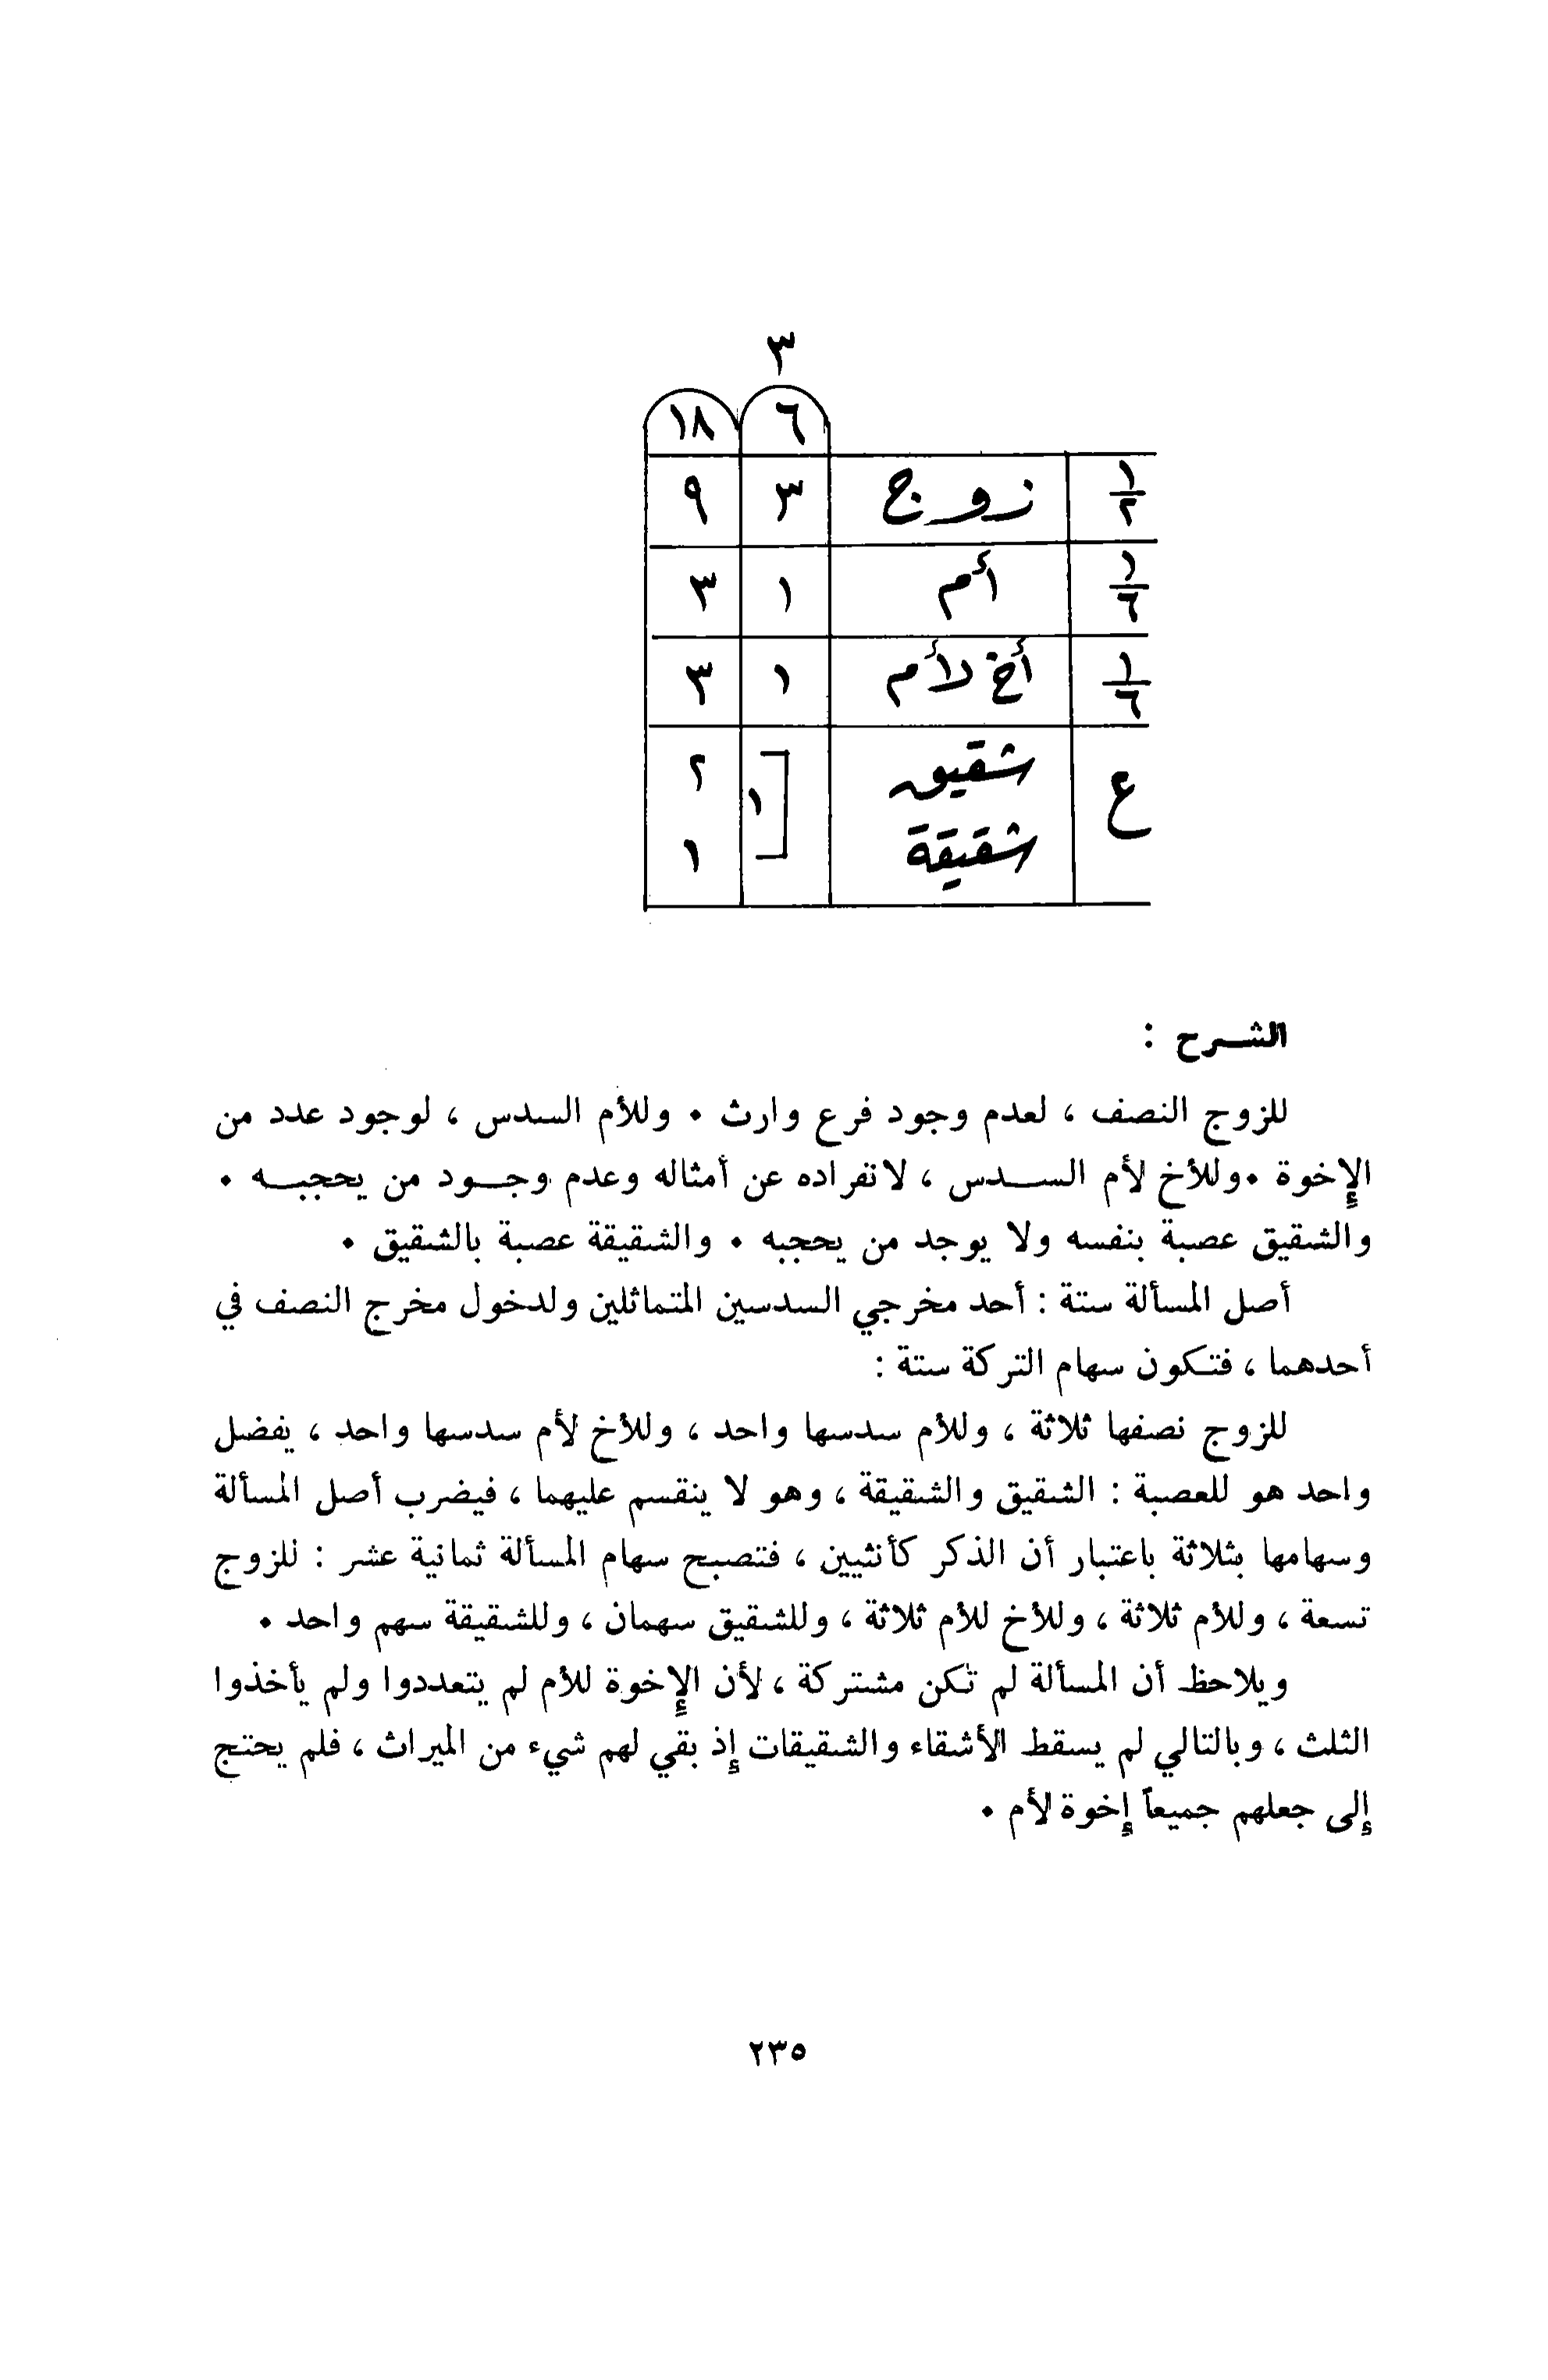 ٣
٦ ١٨
١/٢ زوج ٣ ٩
١/٦ أم ١ ٣
١/٦ أخ لأم ١ ٣
ع شقيق ١ ٢
شقيقة ١
الشـرح :
للزوج النصف ، لعدم وجود فرع وارث ٠ وللأم السدس ، لوجود عدد من
الإخوة ٠وللأخ لأم الســدس ، لانفراده عن أمثاله وعدم وجــود من يحجبــه ٠
والشقيق عصبة بنفسه ولا يوجد من يحجبه ٠ والشقيقة عصبة بالشقيق ٠
أصل المسألة ستة : أحد مخرجي السدسين المتماثلين ولدخول مخرج النصف في
أحدهما ، فتكون سهام التركة ستة :
للزوج نصفها ثلاثة ، وللأم سدسها واحد ، وللأخ لأم سدسها واحد ، يفضل
واحد هو للعصبة : الشقيق والشقيقة ، وهو لا ينقسم عليهما ، فيضرب أصل المسألة
وسهامها بثلاثة باعتبار أن الذكر كأنثيين ، فتصبح سهام المسألة ثمانية عشر : للزوج
تسعة ، وللأم ثلاثة ، وللأخ للأم ثلاثة ، وللشقيق سهمان ، وللشقيقة سهم واحد ٠
ويلاحظ أن المسألة لم تكن مشتركة ، لأن الإخوة للأم لم يتعددوا ولم يأخذوا
الثلث ، وبالتالي لم يسقط الأشقاء والشقيقات إذ بقي لهم شيء من الميراث ، فلم يحتج
إلى جعلهم جميعاً إخوة لأم ٠
٢٣٥